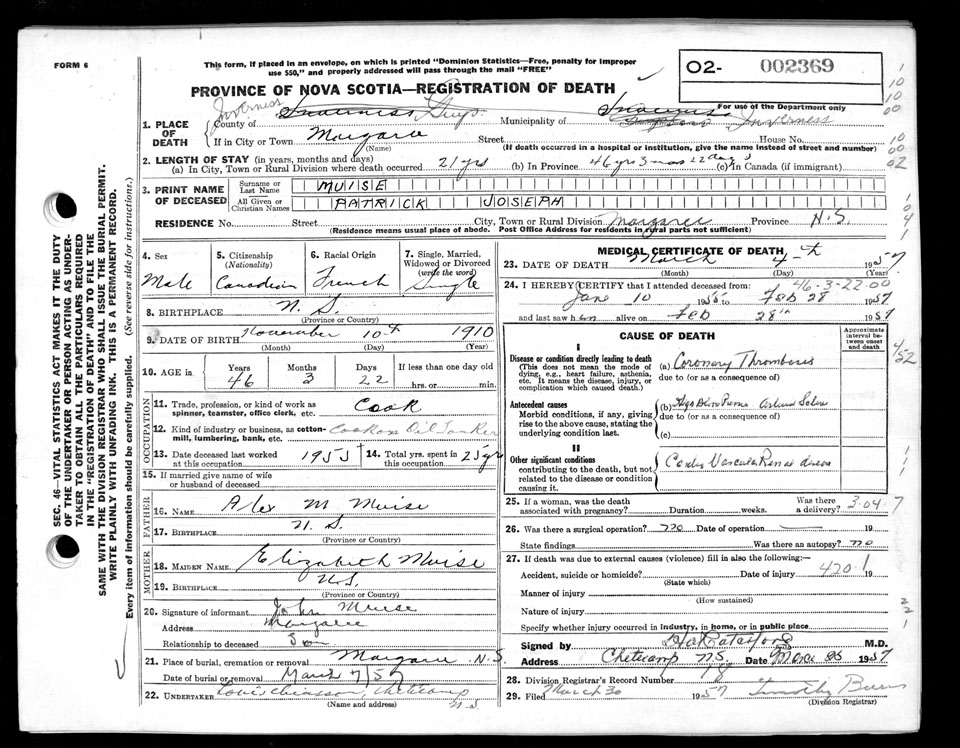 FORM 6
This form, if placed in an envelope, on which is printed "Dominion Statistics—Free, penalty for improper
use $50," and properly addressed will pass through the mail "FREE"
O2- 002369
PROVINCE OF NOVA SCOTIA—REGISTRATION OF DEATH
For use of the Department only
1. PLACE OF DEATH
Inverness
County of Inverness Municipality of Inverness
If in City or Town Margaree Street House No.
(Name) (If death occurred in a hospital or institution, give the name instead of street and number)
2. LENGTH OF STAY (in years, months and days)
(a) In City, Town or Rural Division where death occurred 21 yrs (b) In Province 46 yrs 3 mos 22 days (c) In Canada (if immigrant)
3. PRINT NAME OF DECEASED
Surname or Last Name MUISE
All Given or Christian Names PATRICK JOSEPH
RESIDENCE No. Street City, Town or Rural Division Margaree Province N.S.
(Residence means usual place of abode. Post Office Address for residents in rural parts not sufficient)
4. Sex Male
5. Citizenship (Nationality) Canadian
6. Racial Origin French
7. Single, Married, Widowed or Divorced (write the word) Single
8. BIRTHPLACE N. S.
(Province or Country)
9. DATE OF BIRTH November 10th 1910
(Month) (Day) (Year)
10. AGE in Years Months Days If less than one day old
46 3 22 hrs. or min.
OCCUPATION
11. Trade, profession, or kind of work as spinner, teamster, office clerk, etc. Cook
12. Kind of industry or business, as cotton-mill, lumbering, bank, etc. Cook on Oil Tanker
13. Date deceased last worked at this occupation 1955
14. Total yrs. spent in this occupation 25 yrs
15. If married give name of wife or husband of deceased
FATHER
16. NAME Alex M Muise
17. BIRTHPLACE N. S.
(Province or Country)
MOTHER
18. MAIDEN NAME Elizabeth Muise
19. BIRTHPLACE N.S.
(Province or Country)
20. Signature of informant John Muise
Address Margaree
Relationship to deceased
21. Place of burial, cremation or removal Margaree N.S.
Date of burial or removal March 7/57
22. UNDERTAKER Chiasson, Cheticamp
(Name and address) N.S
MEDICAL CERTIFICATE OF DEATH
23. DATE OF DEATH March 4th 1957
(Month) (Day) (Year)
46-3-22-00
24. I HEREBY CERTIFY that I attended deceased from:
10 1955 to Feb 28 1957
and last saw him alive on Feb 28th 1957
CAUSE OF DEATH
Approximate interval between onset and death
I
Disease or condition directly leading to death
(This does not mean the mode of dying, e.g., heart failure, asthenia, etc. It means the disease, injury, or complication which caused death.)
(a) Coronary Thrombosis
due to (or as a consequence of)
Antecedent causes
Morbid conditions, if any, giving rise to the above cause, stating the underlying condition last.
(b)
due to (or as a consequence of)
(c)
II
Other significant conditions
contributing to the death, but not related to the disease or condition causing it.
Vascular Renal
25. If a woman, was the death associated with pregnancy? Duration weeks. Was there a delivery?
3-04-7
26. Was there a surgical operation? no Date of operation 19
State findings Was there an autopsy? no
27. If death was due to external causes (violence) fill in also the following:—
420.1
Accident, suicide or homicide? Date of injury 19
(State which)
Manner of injury
(How sustained)
Nature of injury
Specify whether injury occurred in industry, in home, or in public place
Signed by M.D.
Address Cheticamp NS Date 1957
28. Division Registrar's Record Number 18
29. Filed March 30 1957 Timothy Burns
(Division Registrar)
SEC. 46—VITAL STATISTICS ACT MAKES IT THE DUTY
OF THE UNDERTAKER OR PERSON ACTING AS UNDER-
TAKER TO OBTAIN ALL THE PARTICULARS REQUIRED
IN THE "REGISTRATION OF DEATH" AND TO FILE THE
SAME WITH THE DIVISION REGISTRAR WHO SHALL ISSUE THE BURIAL PERMIT.
WRITE PLAINLY WITH UNFADING INK. THIS IS A PERMANENT RECORD.
Every item of information should be carefully supplied. (See reverse side for instructions.)